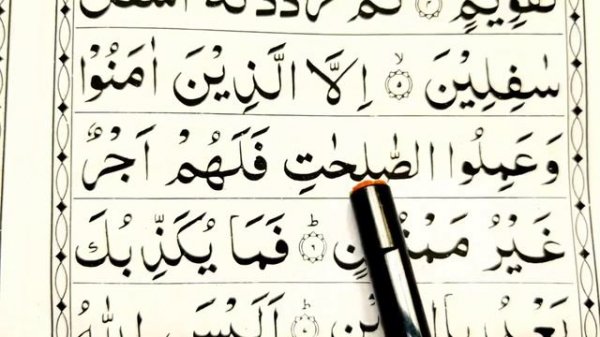 تَقْوِيْمٍ ۴ ثُمَّ رَدَدْنٰهُ اَسْفَلَ
سٰفِلِيْنَ ۵ۙ اِلَّا الَّذِيْنَ اٰمَنُوْا
وَعَمِلُوا الصّٰلِحٰتِ فَلَهُمْ اَجْرٌ
غَيْرُ مَمْنُوْنٍ ۶ؕ فَمَا يُكَذِّبُكَ
بَعْدُ بِالدِّيْنِ ۷ؕ اَلَيْسَ اللّٰهُ